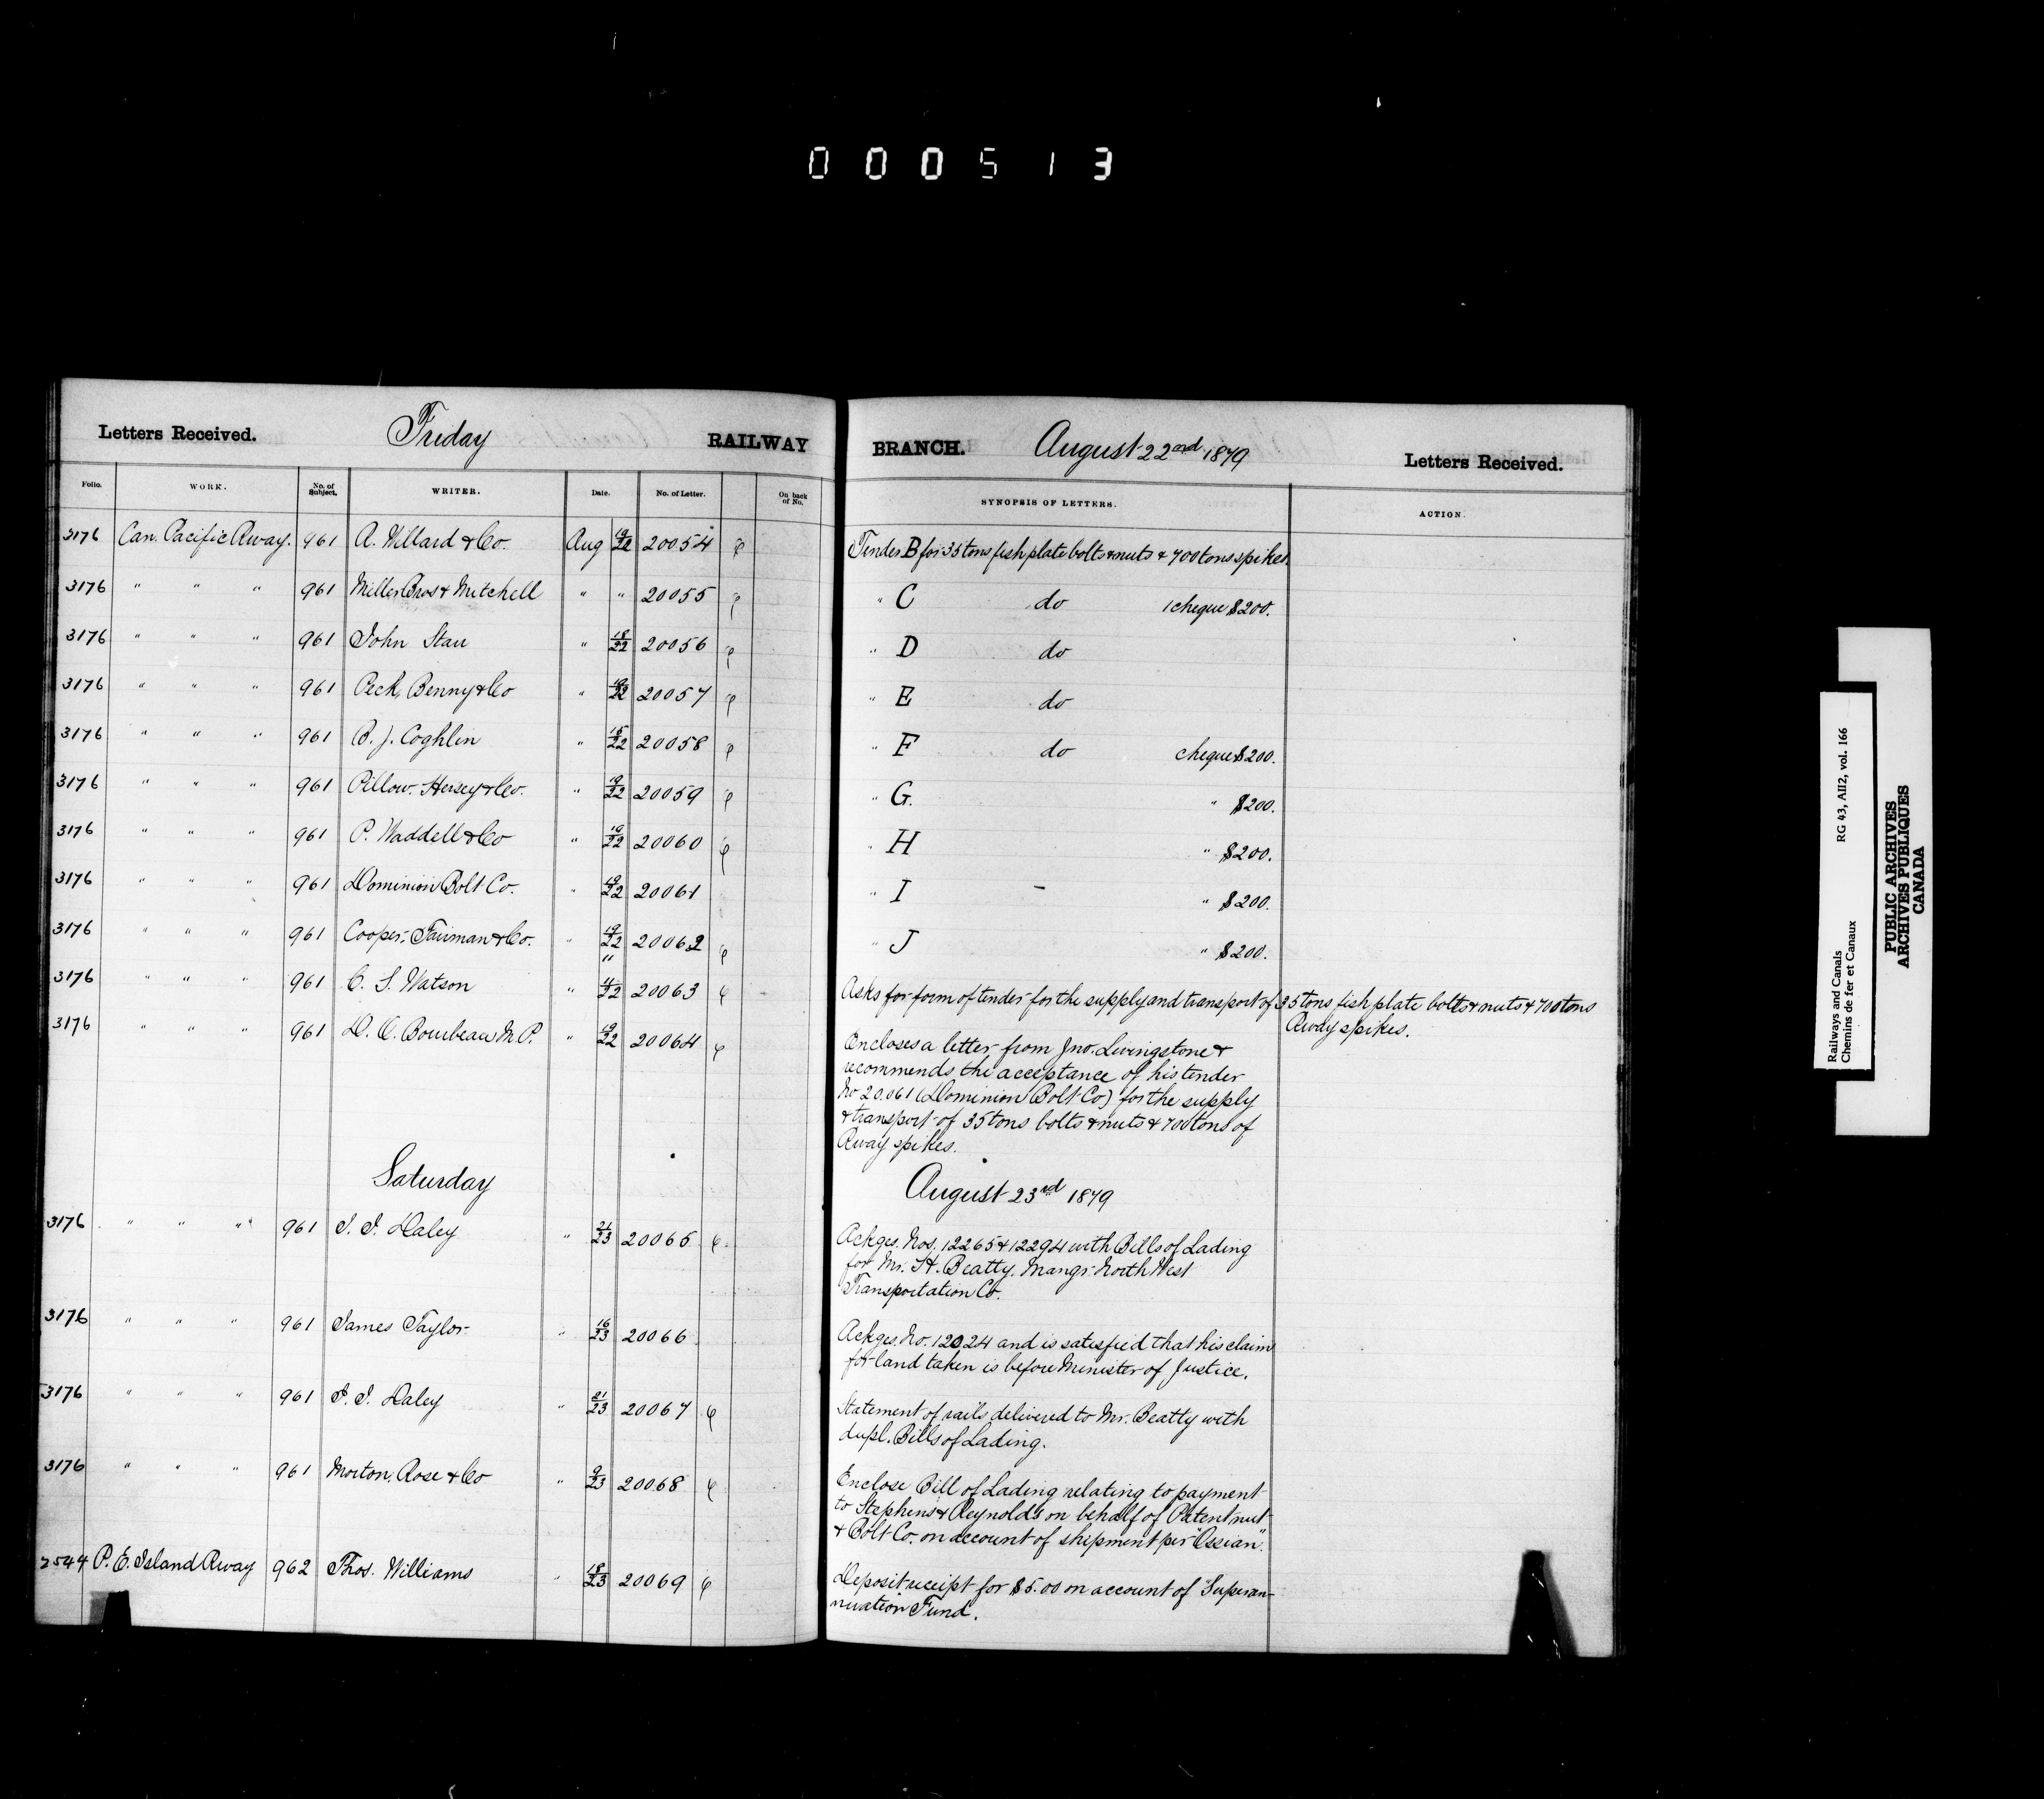 000513
Letters Received. Friday RAILWAY BRANCH. August 22nd 1879 Letters Received.
Folio. WORK. No. of Subject. WRITER. Date. No. of Letter. On back of No. SYNOPSIS OF LETTERS. ACTION.
3176 Can. Pacific Rway. 961 A. Willard & Co. Aug 19/22 20054 Tender B for 35 tons fish plate bolts & nuts & 700 tons spikes.
3176 " " " 961 Miller Bros & Mitchell " " 20055 " C do 1 cheque $200.
3176 " " " 961 John Starr " 18/22 20056 " D do
3176 " " " 961 Peck, Benny & Co " 19/22 20057 " E do
3176 " " " 961 B. J. Coghlin " 18/22 20058 " F do cheque $200.
3176 " " " 961 Pillow. Hersey & Co. " 19/22 20059 " G. " $200.
3176 " " " 961 P. Waddell & Co " 19/22 20060 " H " $200.
3176 " " " 961 Dominion Bolt Co. " 19/22 20061 " I - " $200.
3176 " " " 961 Cooper, Fairman & Co. " 19/22 20062 " J " $200.
3176 " " " 961 C. S. Watson " 11/22 20063 Asks for form of tender for the supply and transport of 35 tons fish plate bolts & nuts & 700 tons
Rway spikes.
3176 " " " 961 D. O. Bourbeau M.P. " 19/22 20064 Encloses a letter from Jno. Livingstone &
recommends the acceptance of his tender
No 20.061 (Dominion Bolt Co) for the supply
& transport of 35 tons bolts & nuts & 700 tons of
Rway spikes.
Saturday August 23rd 1879
3176 " " " 961 J. J. Daley " 21/23 20065 Ackges. Nos. 12265 & 12294 with Bills of Lading
for Mr. H. Beatty. Mangr. North West
Transportation Co.
3176 " " " 961 James Taylor " 16/23 20066 Ackges. No. 12024 and is satisfied that his claim
for land taken is before Minister of Justice.
3176 " " " 961 J. J. Daley " 21/23 20067 Statement of rails delivered to Mr. Beatty with
dupl. Bills of Lading.
3176 " " " 961 Morton, Rose & Co " 9/23 20068 Enclose Bill of Lading relating to payment
to Stephens & Reynolds on behalf of Patent nut
& Bolt Co. on account of shipment per "Ossian".
2544 P. E. Island Rway 962 Thos. Williams " 18/23 20069 Deposit receipt for $5.00 on account of "Superan-
nuation Fund.
Railways and Canals RG 43, AII2, vol. 166
Chemins de fer et Canaux
PUBLIC ARCHIVES
ARCHIVES PUBLIQUES
CANADA